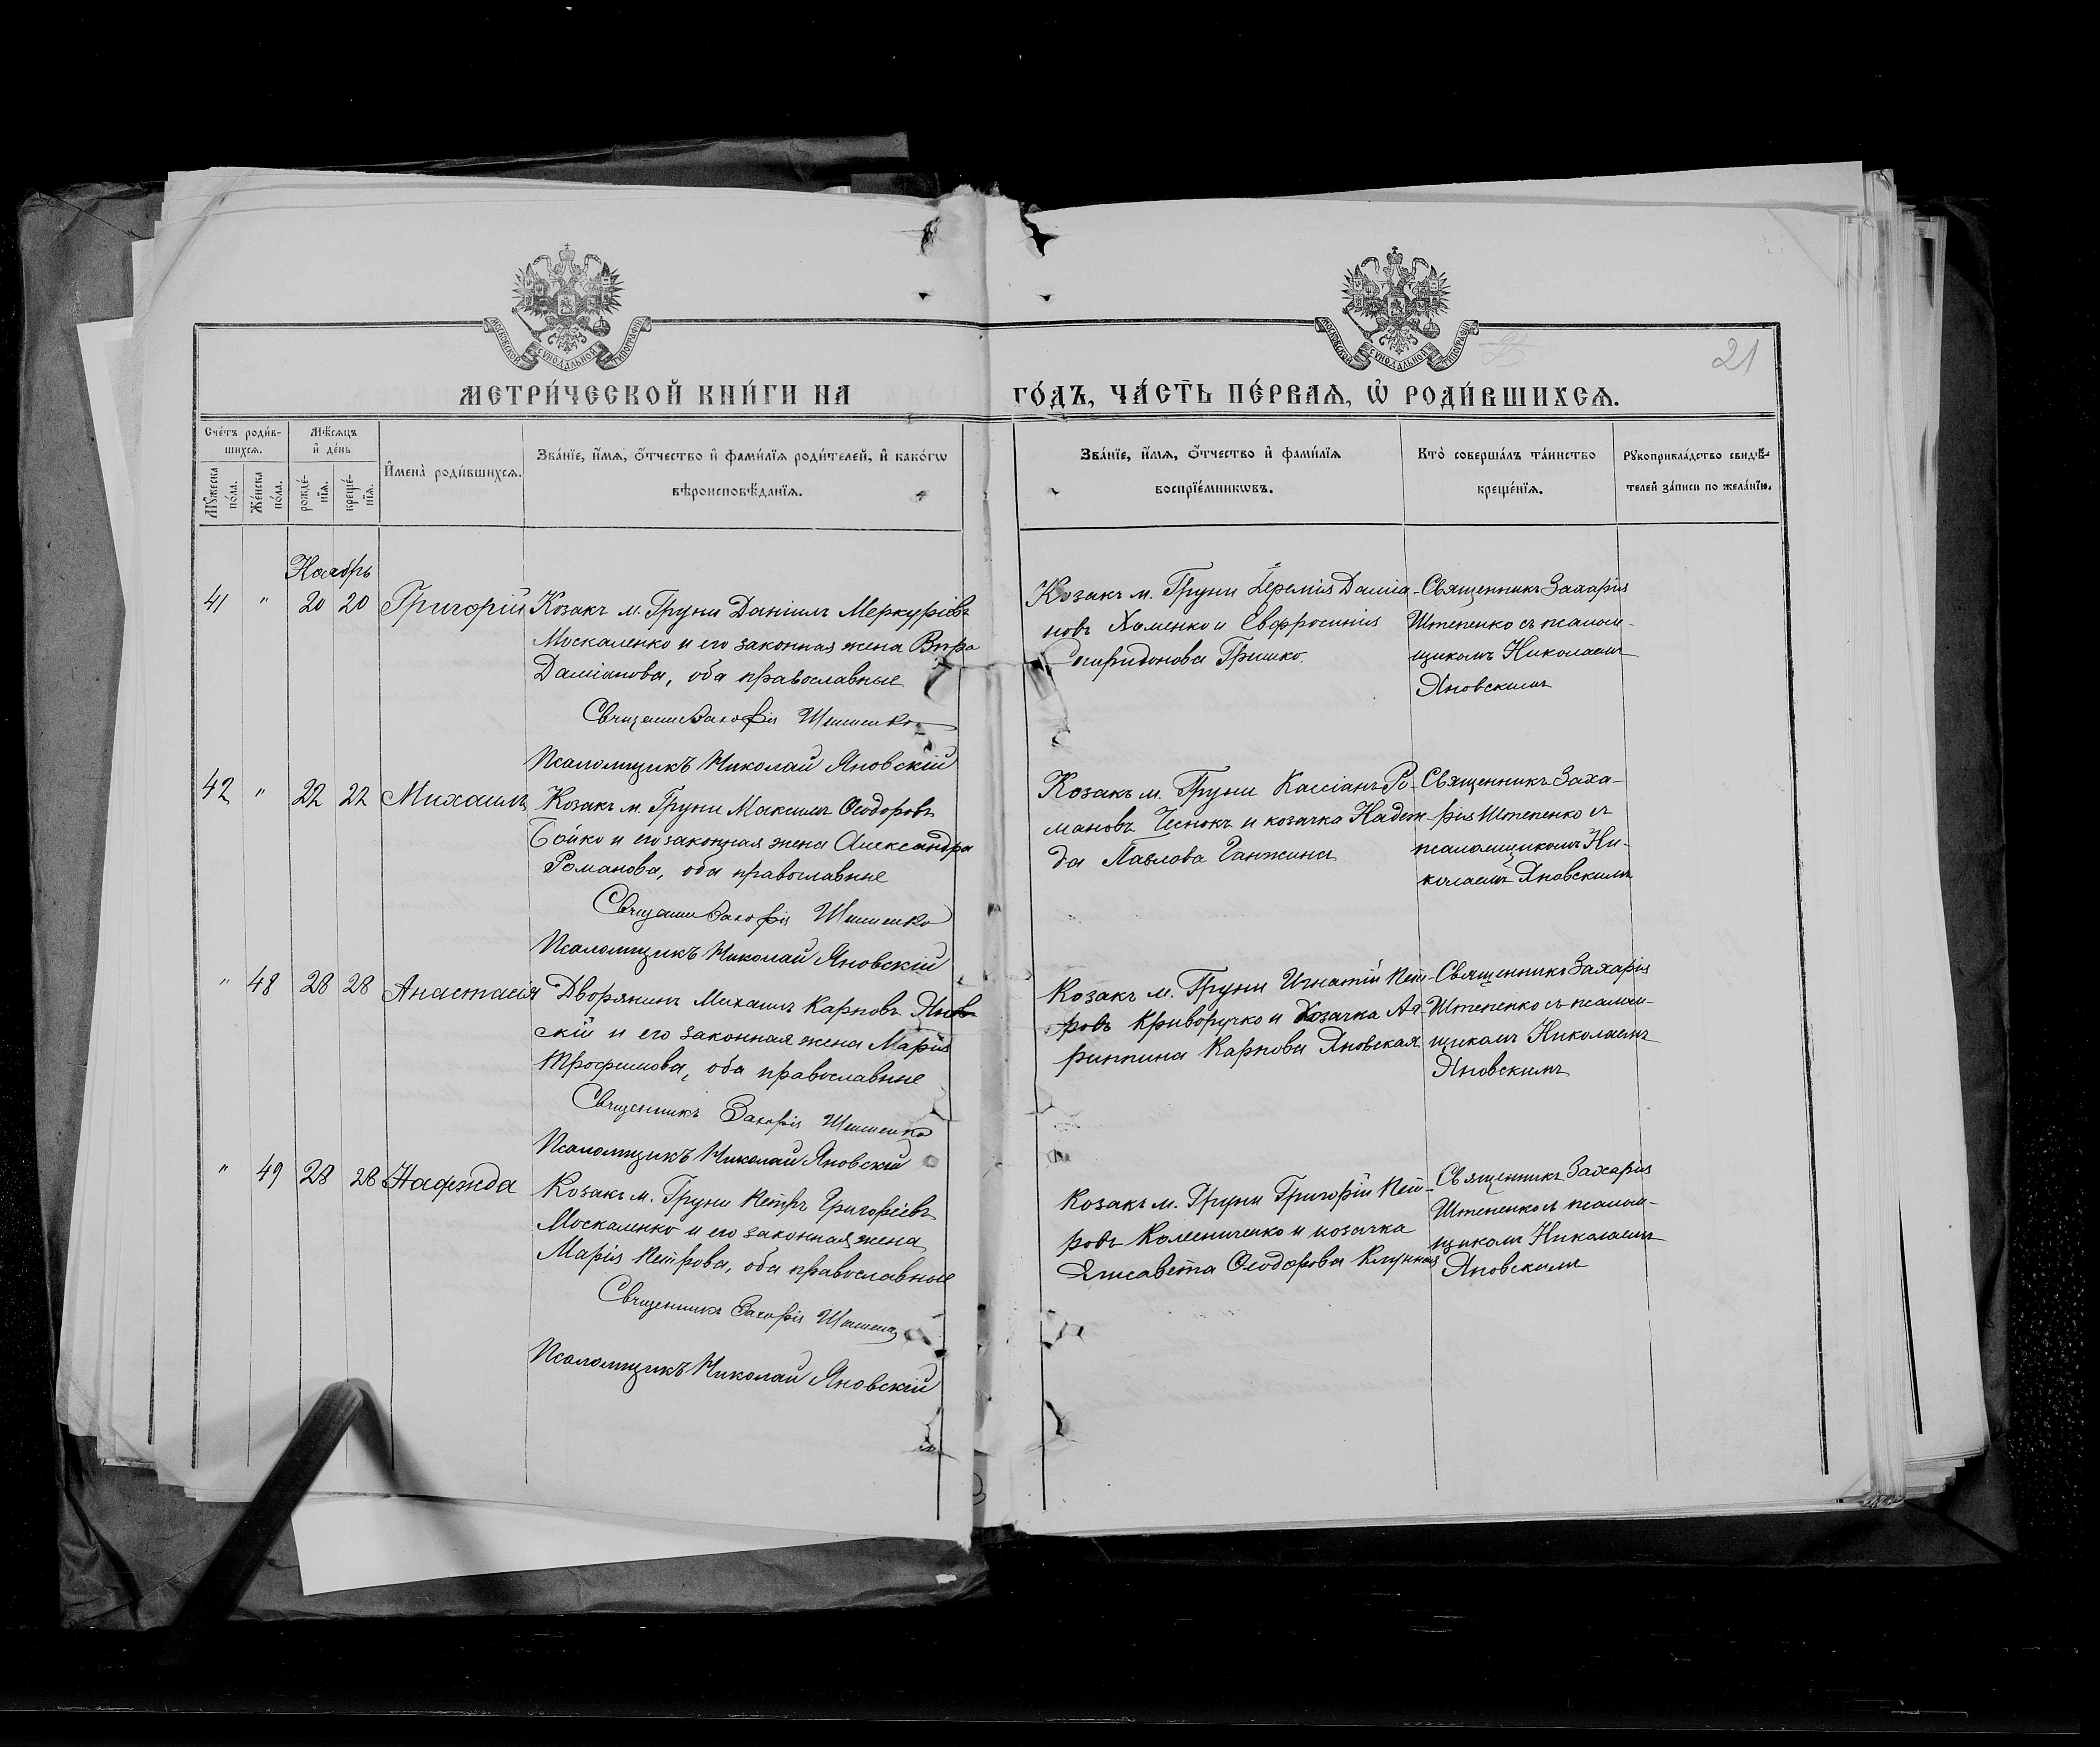 МОСКОВСКОЙ СѴНОДАЛЬНОЙ ТИПОГРАФІИ
МОСКОВСКОЙ СѴНОДАЛЬНОЙ ТИПОГРАФІИ
21
МЕТРИ́ЧЕСКОЙ КНИ́ГИ НА
ГО́ДЪ, ЧА́СТЬ ПЕ́РВАѦ, Ѡ҆ РОДИ́ВШИХСѦ.
Сче́тъ роди́в-
шихсѧ.
Мꙋ́жеска
по́ла.
Же́нска
по́ла.
Мѣ́сѧцъ
и҆ де́нь
рожде́-
нїѧ.
креще́-
нїѧ.
И҆мена̀ роди́вшихсѧ.
Зва́нїе, и҆́мѧ, ѻ҆́тчество и҆ фами́лїѧ роди́телей, и҆ како́гѡ
вѣроисповѣ́данїѧ.
Зва́нїе, и҆́мѧ, ѻ҆́тчество и҆ фами́лїѧ
воспрїе́мникѡвъ.
Кто̀ соверша́лъ та́инство
креще́нїѧ.
Рꙋкоприкла́дство свидѣ́-
телей за́писи по жела́нїю.
Ноябрь
41 " 20 20 Григорій
Козакъ м. Груни Даніилъ Меркуріевъ
Москаленко и его законная жена Вѣра
Даміанова, оба православные
Священ Захарія Штепенко
Псаломщикъ Николай Яновскій
Козакъ м. Груни Іеремія Даміа-
новъ Хоменко и Евфросинія
Спиридонова Гришко.
Священникъ Захарія
Штепенко съ псалом-
щикомъ Николаемъ
Яновскимъ
42 " 22 22 Михаилъ
Козакъ м. Груни Максимъ Ѳеодоровъ
Бойко и его законная жена Александра
Романова, оба православные
Священ Захарія Штепенко
Псаломщикъ Николай Яновскій
Козакъ м. Груни Кассіанъ Ро-
мановъ Чеснокъ и козачка Надеж-
да Павлова Ганжина
Священникъ Заха-
рія Штепенко съ
псаломщикомъ Ни-
колаемъ Яновскимъ
" 48 28 28 Анастасія
Дворянинъ Михаилъ Карповъ Янов
скій и его законная жена Марія
Трофимова, оба православные
Священникъ Захарія Штепенко
Псаломщикъ Николай Яновскій
Козакъ м. Груни Игнатій Пет-
ровъ Криворучко и козачка Аг-
рипина Карпова Яновская
Священникъ Захарія
Штепенко съ псалом-
щикомъ Николаемъ
Яновскимъ
" 49 28 28 Надежда
Козакъ м. Груни Петръ Григоріевъ
Москаленко и его законная жена
Марія Петрова, оба православные
Священникъ Захарія Штепенко
Псаломщикъ Николай Яновскій
Козакъ м. Груни Григорій Пет-
ровъ Колесниченко и козачка
Елисавета Ѳеодорова
Священникъ Захарія
Штепенко съ псалом-
щикомъ Николаемъ
Яновскимъ